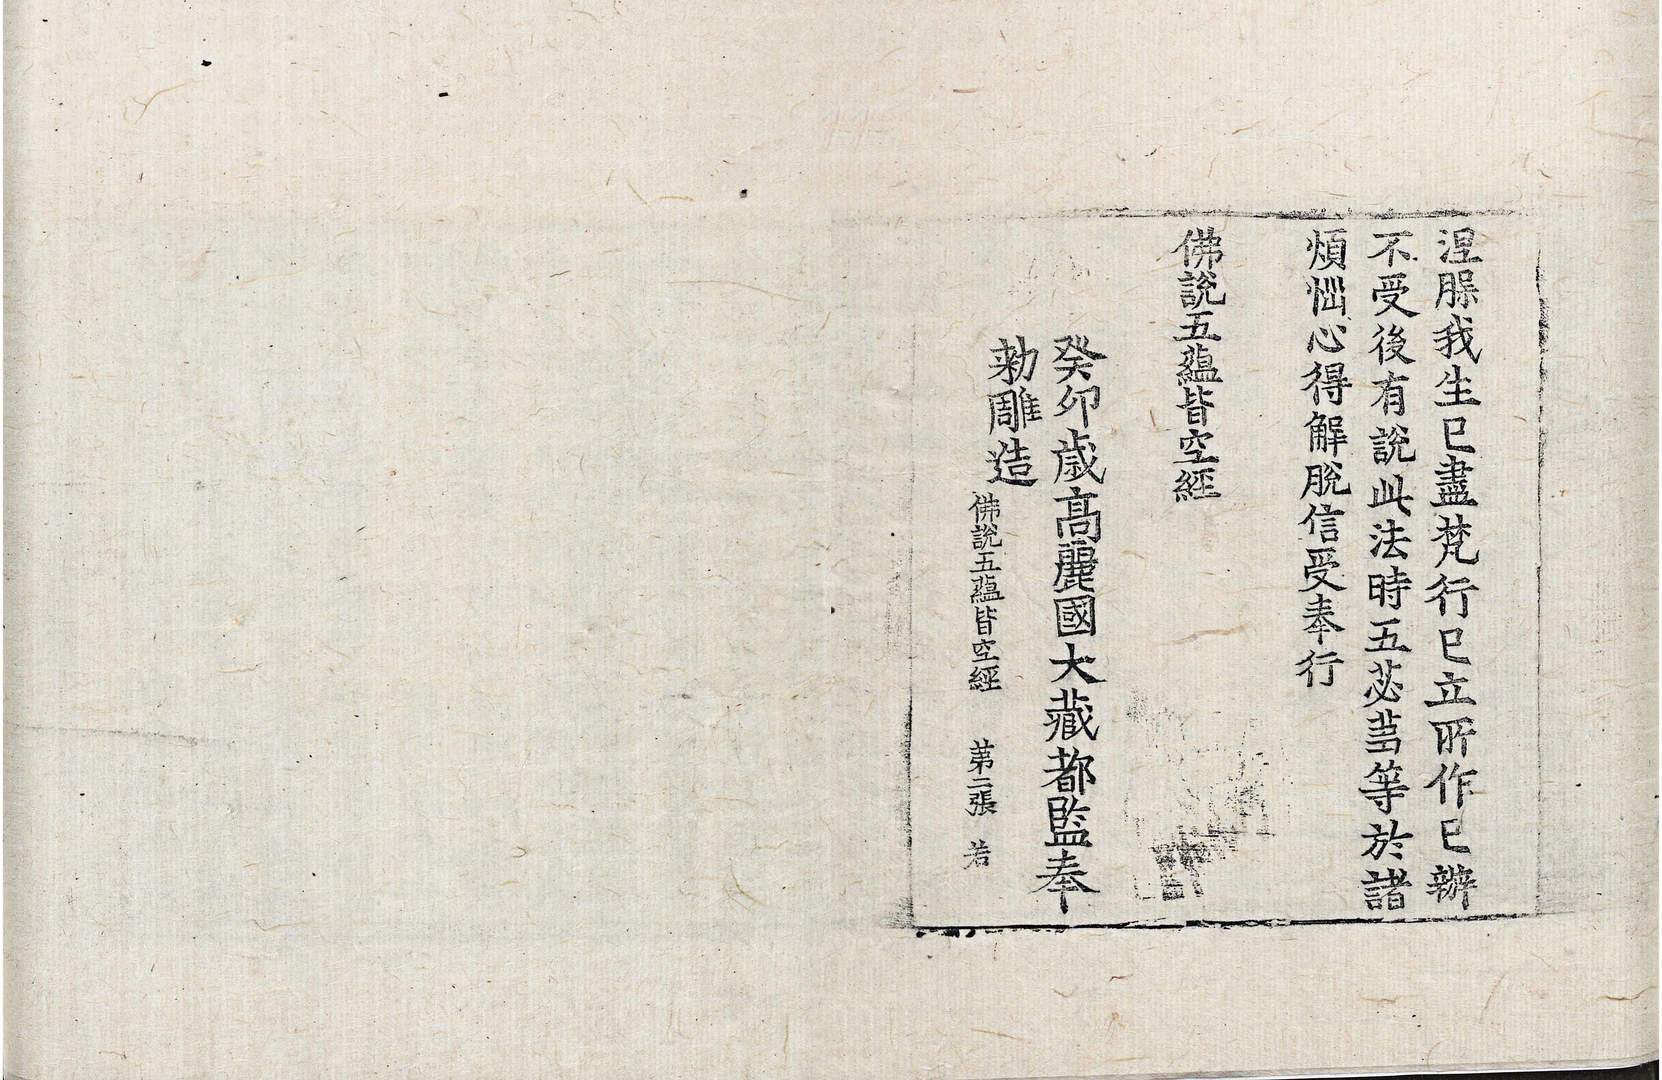 涅槃我生已盡梵行已立所作已辦
不受後有說此法時五苾芻等於諸
煩惱心得解脫信受奉行
佛說五蘊皆空經
癸卯歲高麗國大藏都監奉
勑雕造
佛說五蘊皆空經 第二張 若